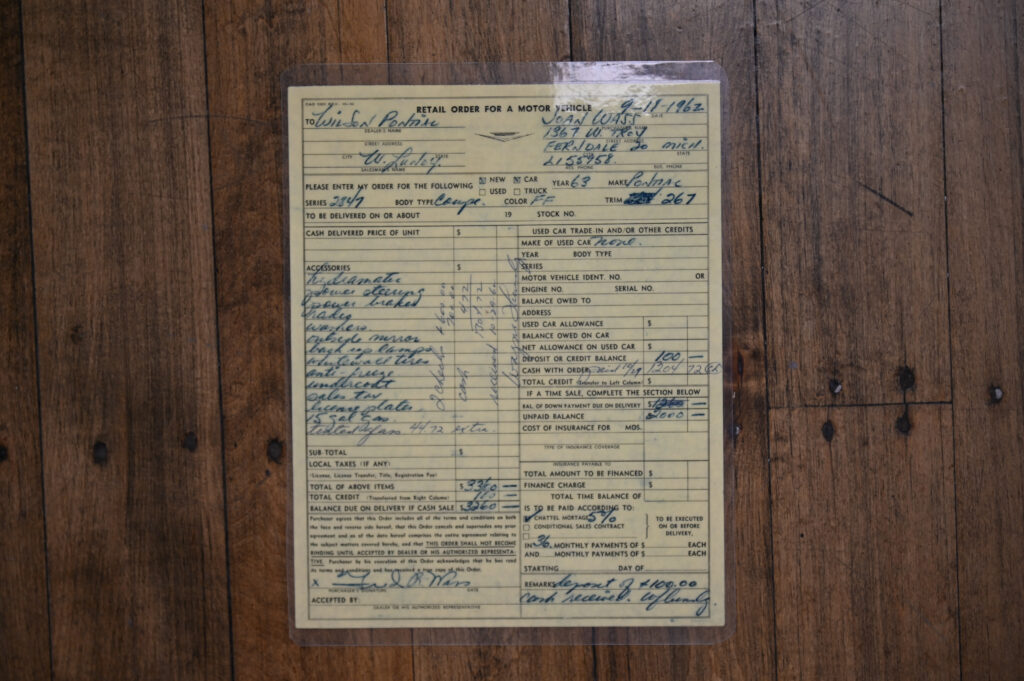 RETAIL ORDER FOR A MOTOR VEHICLE 9-18-1962
DATE
TO Wilson Pontiac JOAN WASS
DEALER'S NAME PURCHASER'S NAME
1367 W. TROY
STREET ADDRESS STREET ADDRESS
FERNDALE 20 MICH.
CITY STATE STATE
W. Lundy LI55958.
SALESMAN'S NAME RES. PHONE BUS. PHONE
PLEASE ENTER MY ORDER FOR THE FOLLOWING NEW CAR YEAR 63 MAKE Pontiac
USED TRUCK
SERIES 2347 BODY TYPE Coupe. COLOR FF TRIM 267
TO BE DELIVERED ON OR ABOUT 19 STOCK NO.
CASH DELIVERED PRICE OF UNIT $
ACCESSORIES $
hydramatic
power steering
power brakes
radio
washers
outside mirror
back up lamps
whitewall tires
anti-freeze
undercoat
sales tax
license plates
15 gal gas.
tinted glass 44 72 extra.
2 checks
cash
received
SUB-TOTAL $
LOCAL TAXES (IF ANY)
(License, License Transfer, Title, Registration Fee)
TOTAL OF ABOVE ITEMS $ 3360 —
TOTAL CREDIT (Transferred from Right Column) 100 —
BALANCE DUE ON DELIVERY IF CASH SALE $ 3260 —
Purchaser agrees that this Order includes all of the terms and conditions on both
the face and reverse side hereof, that this Order cancels and supersedes any prior
agreement and as of the date hereof comprises the entire agreement relating to
the subject matters covered hereby, and that THIS ORDER SHALL NOT BECOME
BINDING UNTIL ACCEPTED BY DEALER OR HIS AUTHORIZED REPRESENTA-
TIVE. Purchaser by his execution of this Order acknowledges that he has read
its terms and conditions and has received a true copy of this Order.
X Wass
PURCHASER'S SIGNATURE DATE
ACCEPTED BY:
DEALER OR HIS AUTHORIZED REPRESENTATIVE
USED CAR TRADE IN AND/OR OTHER CREDITS
MAKE OF USED CAR none.
YEAR BODY TYPE
SERIES
MOTOR VEHICLE IDENT. NO. OR
ENGINE NO. SERIAL NO.
BALANCE OWED TO
ADDRESS
USED CAR ALLOWANCE $
BALANCE OWED ON CAR
NET ALLOWANCE ON USED CAR $
DEPOSIT OR CREDIT BALANCE 100 —
CASH WITH ORDER 1204 72
TOTAL CREDIT (Transfer to Left Column) $
IF A TIME SALE, COMPLETE THE SECTION BELOW
BAL OF DOWN PAYMENT DUE ON DELIVERY $ 1260 —
UNPAID BALANCE 2000 —
COST OF INSURANCE FOR MOS.
TYPE OF INSURANCE COVERAGE
INSURANCE PAYABLE TO
TOTAL AMOUNT TO BE FINANCED $
FINANCE CHARGE $
TOTAL TIME BALANCE OF
IS TO BE PAID ACCORDING TO:
CHATTEL MORTGAGE 5%
CONDITIONAL SALES CONTRACT
TO BE EXECUTED
ON OR BEFORE
DELIVERY,
IN 36 MONTHLY PAYMENTS OF $ EACH
AND MONTHLY PAYMENTS OF $ EACH
STARTING DAY OF
REMARKS deposit of $100.00
cash received. W Lundy.